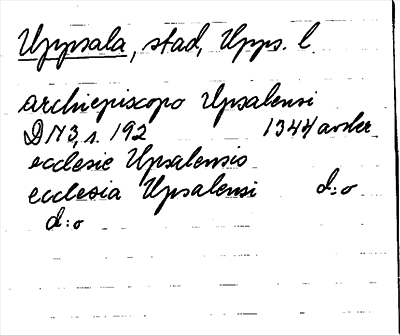 Uppsala, stad, Upps. l
archiepiscopo Upsalensi
DN3, s. 192 1344 avskr
ecclesie Upsalensis
ecclesia Upsalensi d:o
d:o